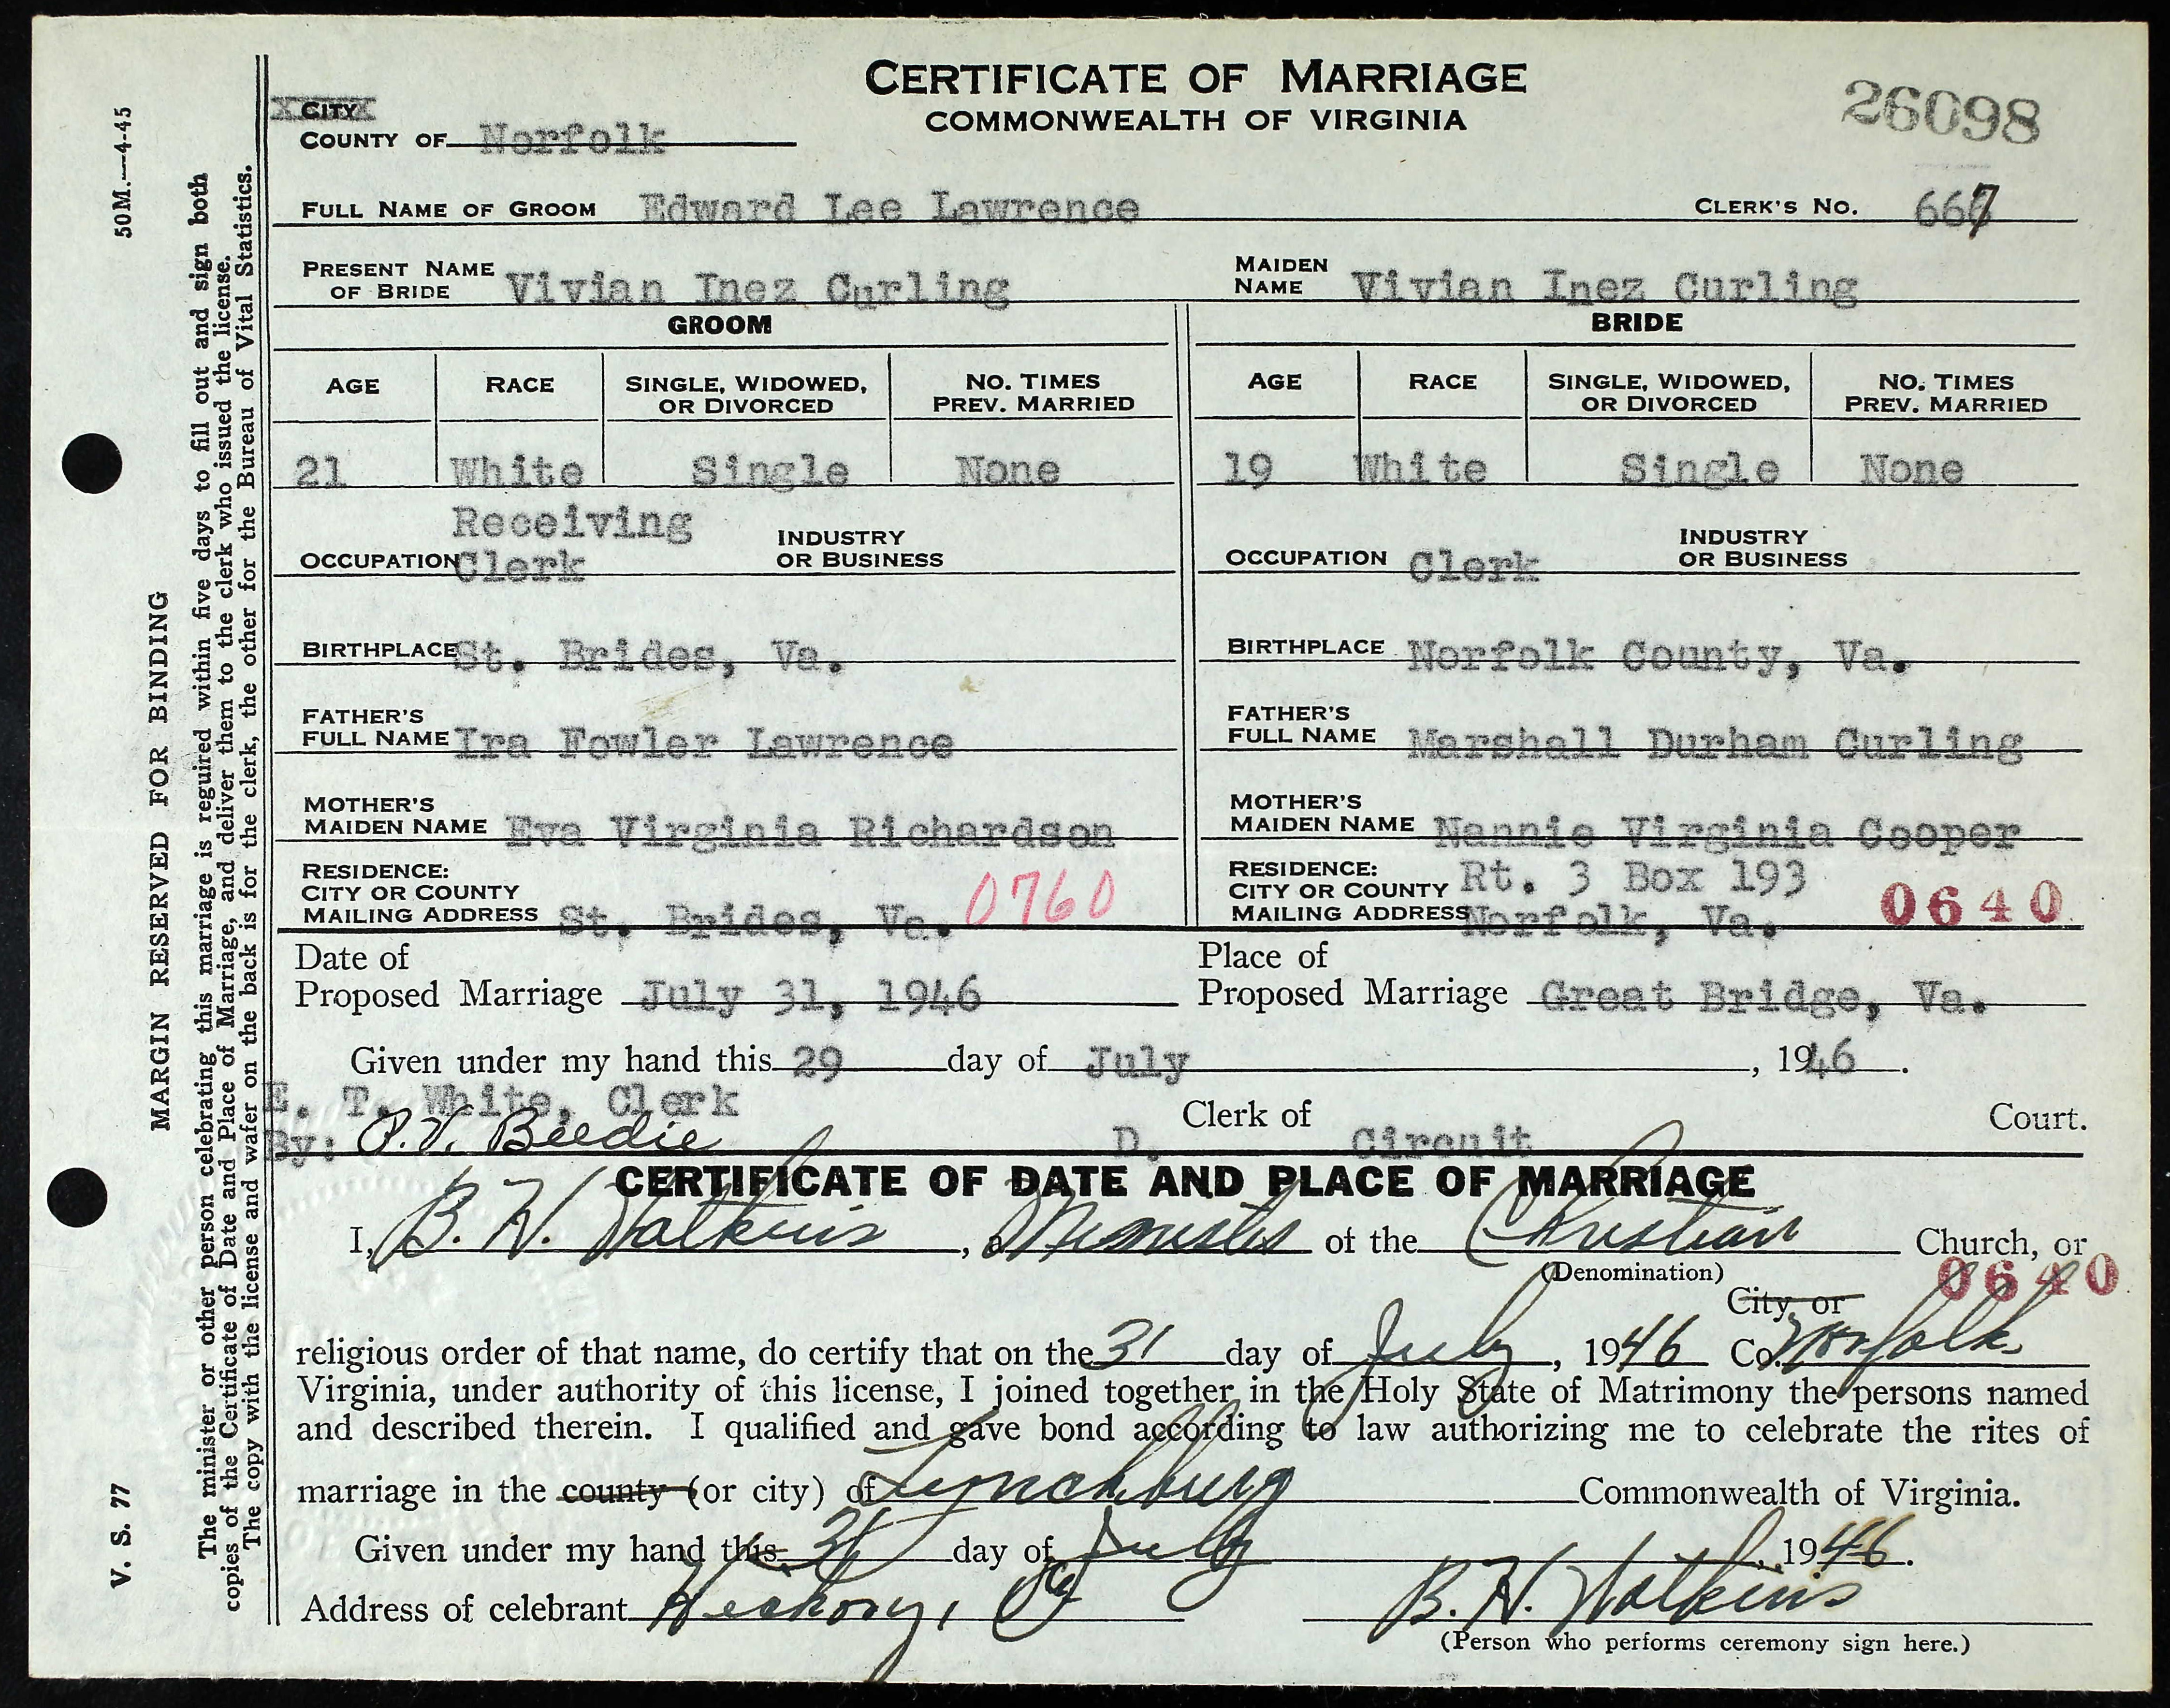 CERTIFICATE OF MARRIAGE
COMMONWEALTH OF VIRGINIA
26098
CITY
COUNTY OF Norfolk
FULL NAME OF GROOM Edward Lee Lawrence CLERK'S NO. 667
PRESENT NAME OF BRIDE Vivian Inez Curling MAIDEN NAME Vivian Inez Curling
GROOM BRIDE
AGE RACE SINGLE, WIDOWED, OR DIVORCED NO. TIMES PREV. MARRIED AGE RACE SINGLE, WIDOWED, OR DIVORCED NO. TIMES PREV. MARRIED
21 White Single None 19 White Single None
OCCUPATION Receiving Clerk INDUSTRY OR BUSINESS OCCUPATION Clerk INDUSTRY OR BUSINESS
BIRTHPLACE St. Brides, Va. BIRTHPLACE Norfolk County, Va.
FATHER'S FULL NAME Ira Fowler Lawrence FATHER'S FULL NAME Marshall Durham Curling
MOTHER'S MAIDEN NAME Eva Virginia Richardson MOTHER'S MAIDEN NAME Nannie Virginia Cooper
RESIDENCE: CITY OR COUNTY MAILING ADDRESS St. Brides, Va. 0760 RESIDENCE: CITY OR COUNTY MAILING ADDRESS Rt. 3 Box 193 Norfolk, Va. 0640
Date of Proposed Marriage July 31, 1946 Place of Proposed Marriage Great Bridge, Va.
Given under my hand this 29 day of July, 1946.
E. T. White, Clerk
By: P.V. Beedie D. Clerk of Circuit Court.
CERTIFICATE OF DATE AND PLACE OF MARRIAGE
I, B. H. Watkins, a Minister of the Christian Church, or
(Denomination)
0640
City or
religious order of that name, do certify that on the 31 day of July, 1946 Co. Norfolk,
Virginia, under authority of this license, I joined together in the Holy State of Matrimony the persons named
and described therein. I qualified and gave bond according to law authorizing me to celebrate the rites of
marriage in the county (or city) of Lynchburg Commonwealth of Virginia.
Given under my hand this 31 day of July, 1946.
Address of celebrant Hickory, Va B. H. Watkins
(Person who performs ceremony sign here.)
50M.—4-45
MARGIN RESERVED FOR BINDING
V. S. 77
The minister or other person celebrating this marriage is required within five days to fill out and sign both
copies of the Certificate of Date and Place of Marriage, and deliver them to the clerk who issued the license.
The copy with the license and wafer on the back is for the clerk, the other for the Bureau of Vital Statistics.